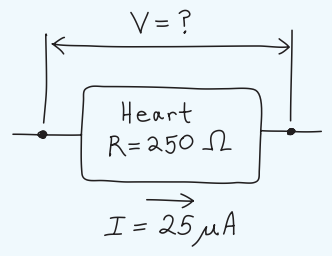 V = ?
Heart
R = 250 Ω
I = 25 μA